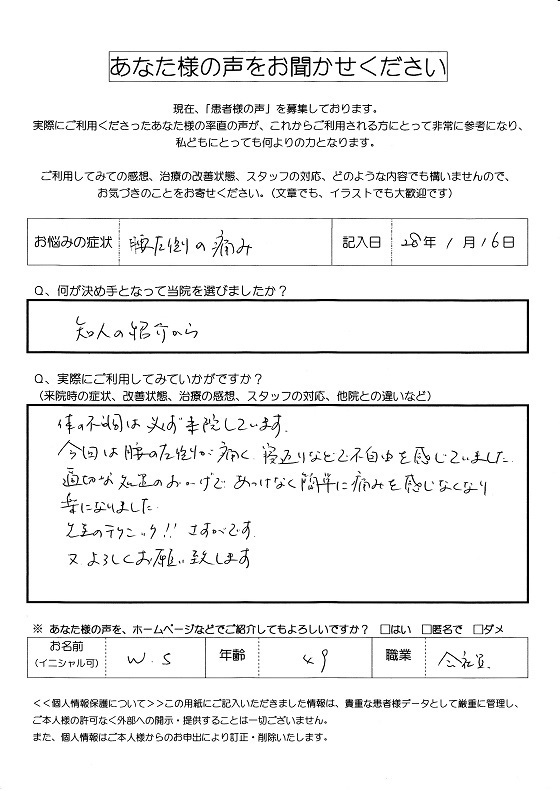 あなた様の声をお聞かせください
現在、「患者様の声」を募集しております。
実際にご利用くださったあなた様の率直の声が、これからご利用される方にとって非常に参考になり、
私どもにとっても何よりの力となります。
ご利用してみての感想、治療の改善状態、スタッフの対応、どのような内容でも構いませんので、
お気づきのことをお寄せください。（文章でも、イラストでも大歓迎です）
お悩みの症状 腰左側の痛み 記入日 28年 1月 16日
Q、何が決め手となって当院を選びましたか？
知人の紹介から
Q、実際にご利用してみていかがですか？
（来院時の症状、改善状態、治療の感想、スタッフの対応、他院との違いなど）
体の不調は必ず来院しています。
今回は腰の左側が痛く、寝返りなどで不自由を感じていました。
適切な処置のおかげで、あっけなく簡単に痛みを感じなくなり
楽になりました。
先生のテクニック!! さすがです。
又よろしくお願い致します
※ あなた様の声を、ホームページなどでご紹介してもよろしいですか？ □はい □匿名で □ダメ
お名前（イニシャル可） W.S 年齢 49 職業 会社員
＜＜個人情報保護について＞＞この用紙にご記入いただきました情報は、貴重な患者様データとして厳重に管理し、
ご本人様の許可なく外部への開示・提供することは一切ございません。
また、個人情報はご本人様からのお申出により訂正・削除いたします。